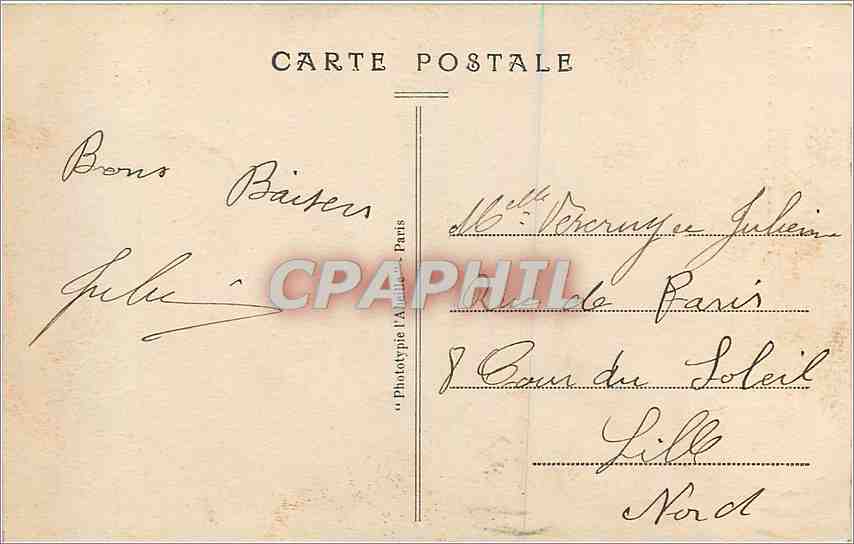 CARTE POSTALE
Bons Baisers
"Phototypie l'Abeille" - Paris
CPAPHIL
Melle Vercruyse Julienne
Rue de Paris
8 Cour du Soleil
Lille
Nord